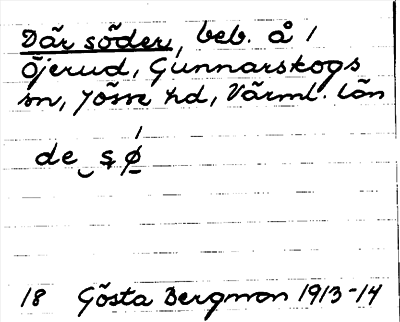 Där söder, beb. å 1
Öjerud, Gunnarskogs
sn, Jösse hd, Värml. län
de ̮ s ø
18 Gösta Bergman 1913-14